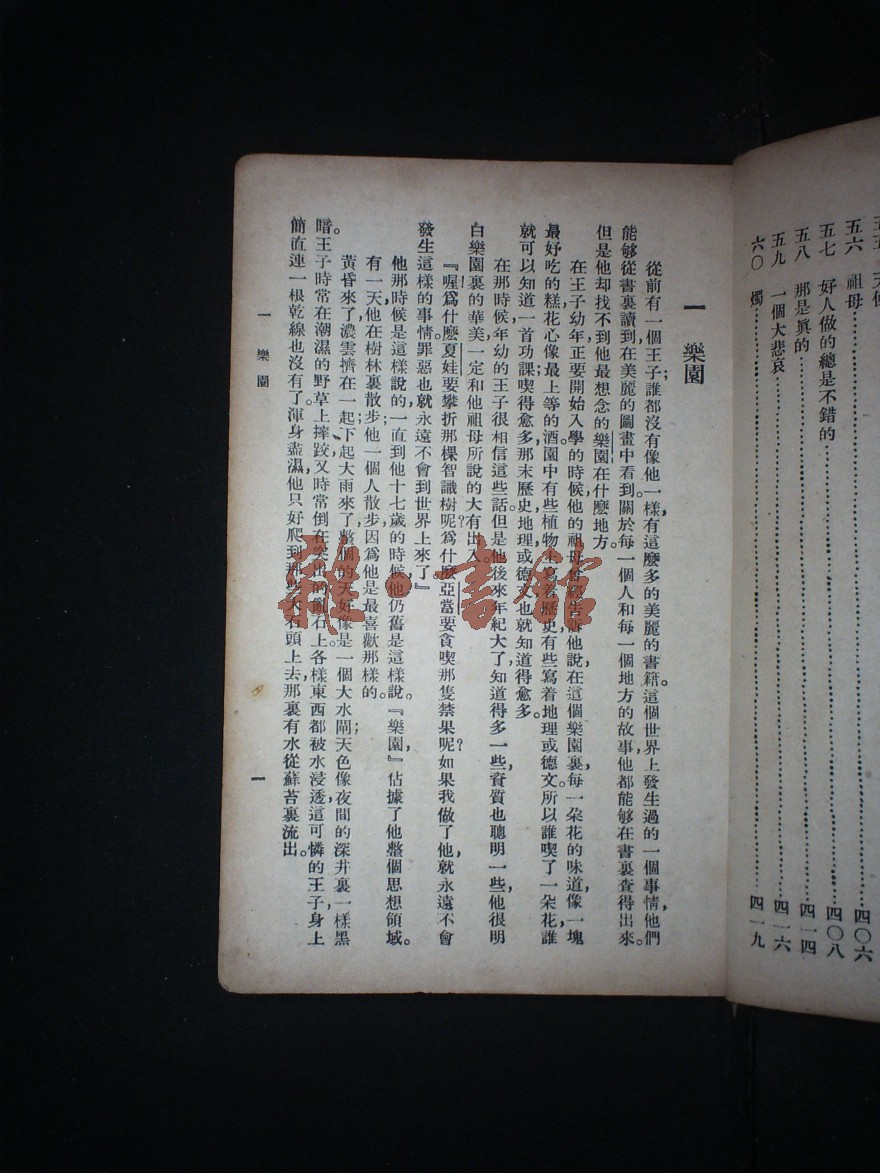 五六 祖母……………四〇六
五七 好人做的總是不錯的……………四〇八
五八 那是眞的……………四一四
五九 一個大悲哀……………四一六
六〇 燭……………四一九
一 樂園
從前有一個王子；誰都沒有像他一樣，有這麽多的美麗的書籍。這個世界上發生過的一個事情，他們
能够從書裏讀到，在美麗的圖畫中看到。關於每一個人和每一個地方的故事，他都能够在書裏查得出來。
但是他却找不到他最想念的樂園在什麽地方。
在王子幼年，正要開始入學的時候，他的祖母告訴他說，在這個樂園裏，每一朶花的味道，像一塊
最好吃的糕，花心像最上等的酒；園中有些植物生寫着歷史，有些寫着地理或德文。所以誰喫了一朶花，誰
就可以知道一首功課；喫得愈多，那末歷史，地理，或德文也就知道得愈多。
在那時候，年幼的王子很相信這些話。但是他後來年紀大了，知道得多一些，資質也聰明一些，他很明
白樂園裏的華美一定和他祖母所說的大有出入。
『喔，爲什麽夏娃要攀折那棵智識樹呢？爲什麽亞當要貪喫那隻禁果呢？如果我做了他，就永遠不會
發生這樣的事情。罪惡也就永遠不會到世界上來了，』
他那時候是這樣說的，一直到他十七歲的時候，他仍舊是這樣說。『樂園，』佔據了他整個思想領域。
有一天，他在樹林裏散步；他一個人散步，因爲他是最喜歡那樣的。
黃昏來了，濃雲擠在一起，下起大雨來了，整個的天好像是一個大水閘；天色像夜間的深井裏一樣黑
暗。王子時常在潮濕的野草上摔跤，又時常倒在突出的亂石上。各樣東西都被水浸透，這可憐的王子，身上
簡直連一根乾線也沒有了。渾身盡濕，他只好爬到那些大石頭上去，那裏有水從蘚苔裏流出。
一 樂園
一
雜·書館